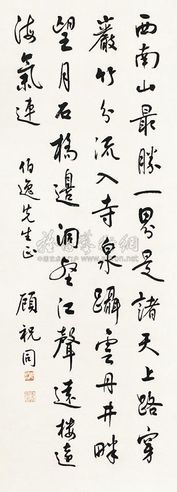 西南山最勝一界是諸天上路穿
巖竹分流入寺泉躡雲丹井畔
望月石橋邊洞壑江聲遠樓臺
海氣連
伯逸先生正 顧祝同